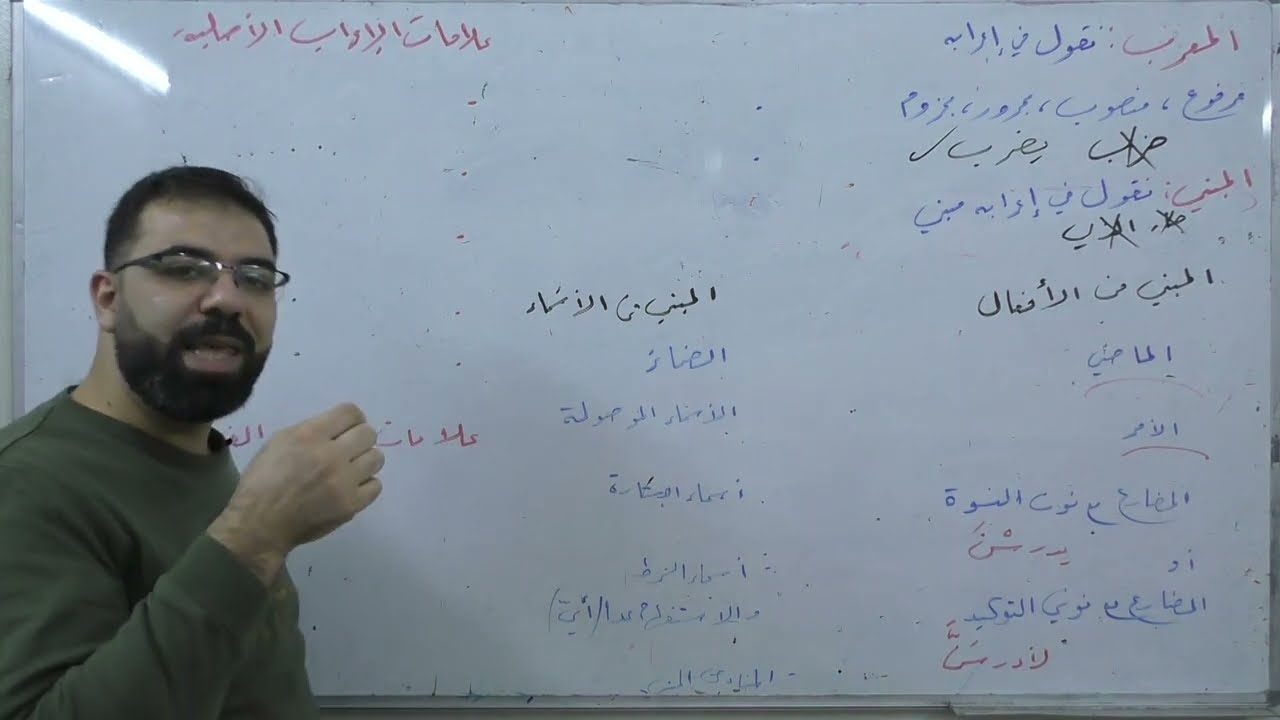 المعرب: نقول في إعرابه
مرفوع، منصوب، مجرور، مجزوم
يضرب
المبني: نقول في إعرابه مبني
المبني من الأفعال
الماضي
الأمر
المضارع مع نون النسوة
يدرسْنَ
أو
المضارع مع نوني التوكيد
لأدرسَنَّ
علامات الإعراب الأصلية
المبني من الأسماء
الضمائر
الأسماء الموصولة
أسماء الإشارة
أسماء الشرط
والاستفهام عدا (أيّ)
علامات